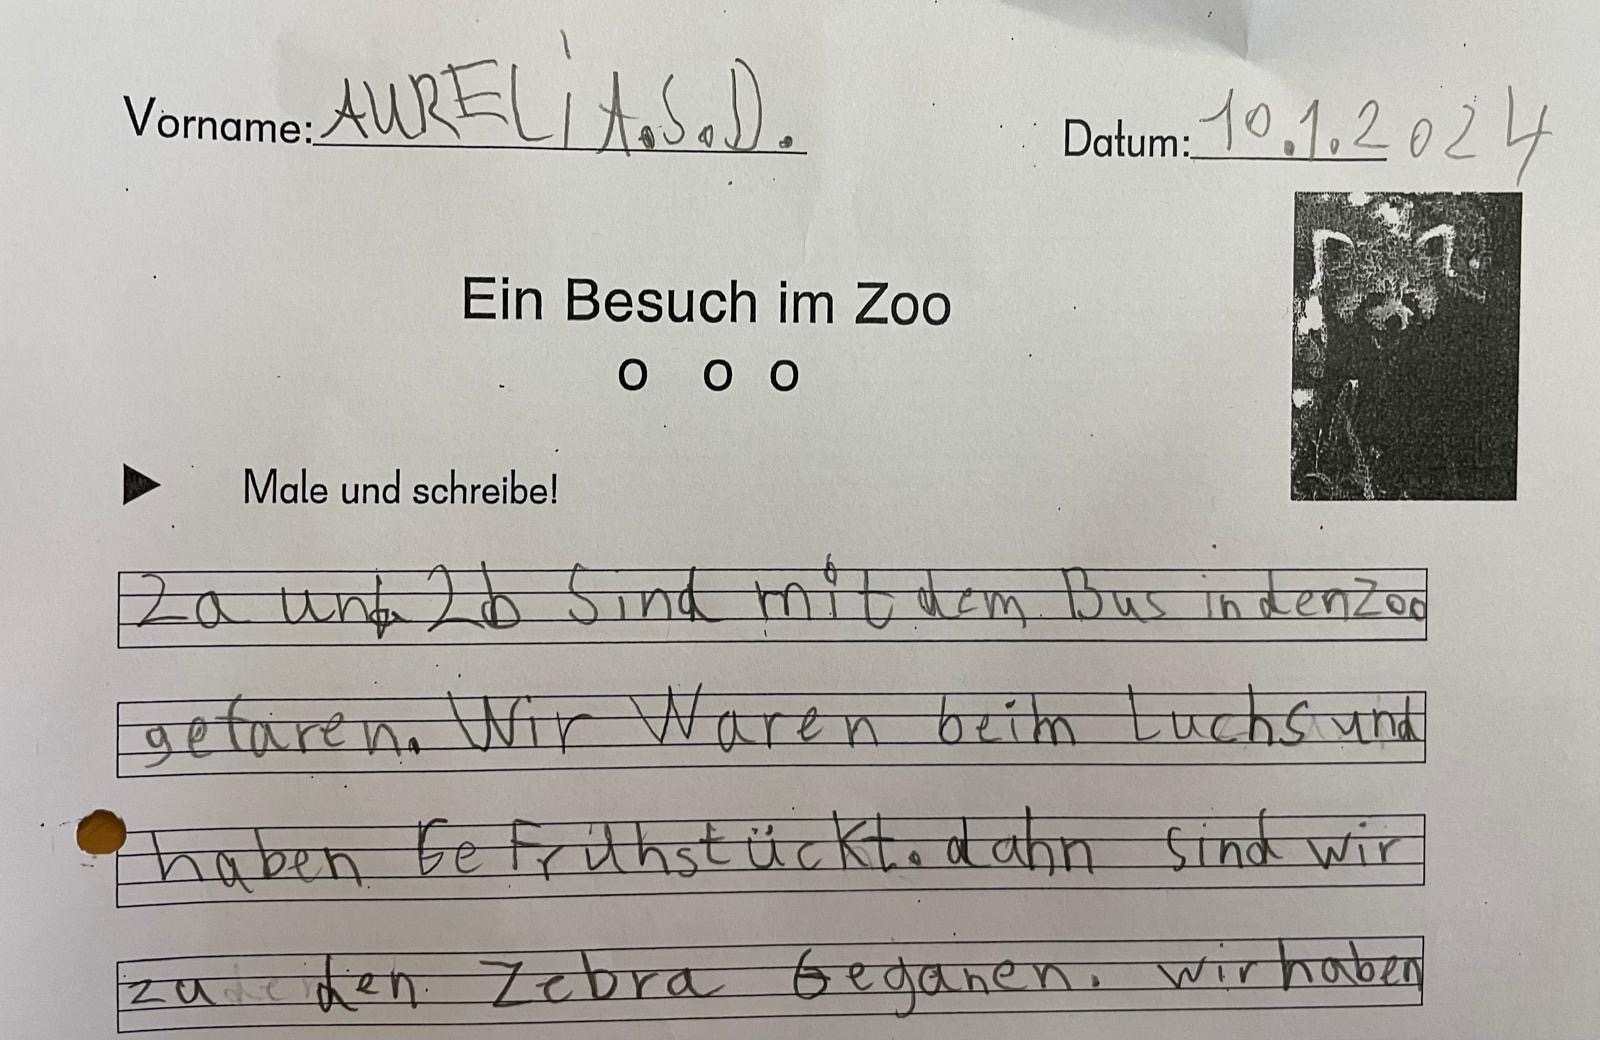 Vorname: AURELiA.S.D. Datum: 10.1.2024
Ein Besuch im Zoo
o o o
Male und schreibe!
2a und 2b Sind mit dem Bus in den Zoo
gefaren. Wir Waren beim Luchs und
haben Ge Frühstückt. dahn sind wir
zu den Zebra Geganen. wir haben